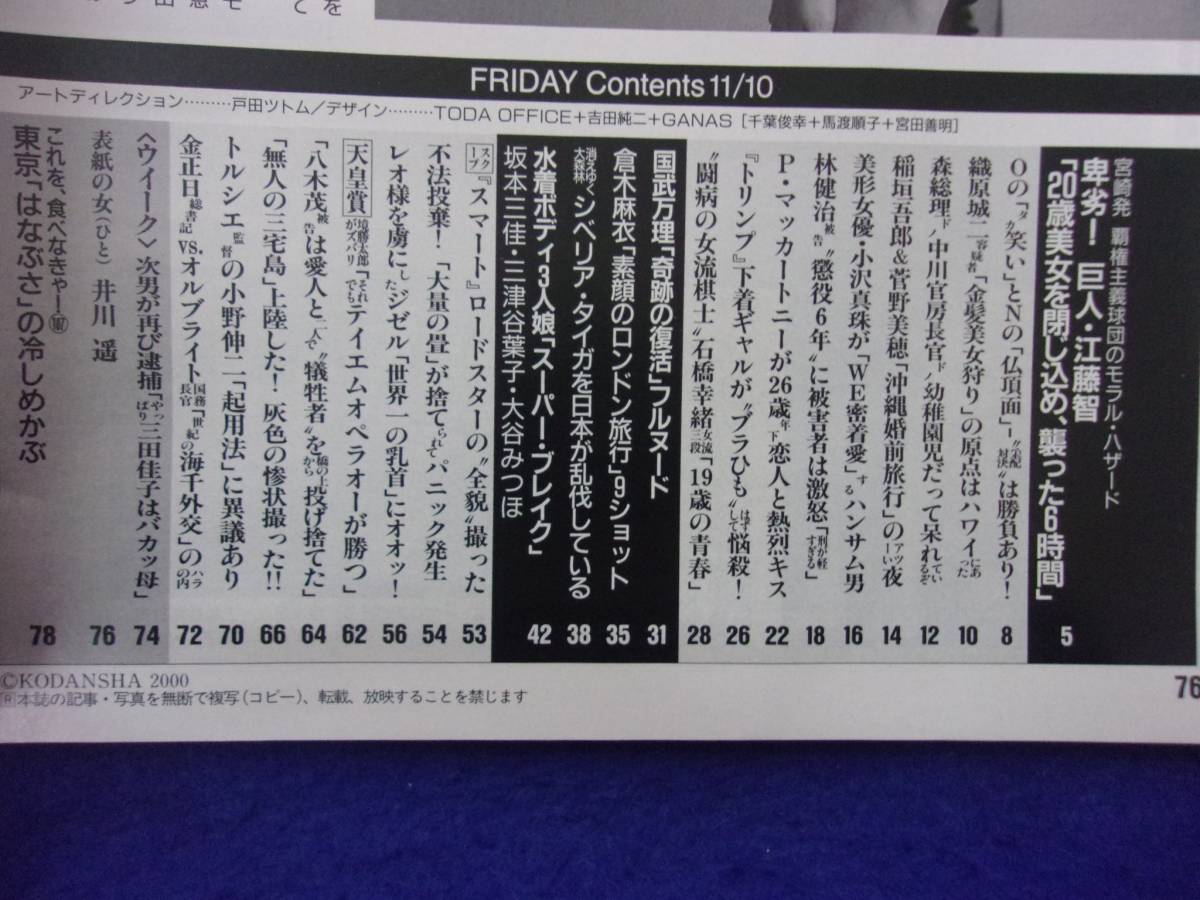 FRIDAY Contents 11/10
アートディレクション………戸田ツトム／デザイン………TODA OFFICE＋吉田純二＋GANAS［千葉俊幸＋馬渡順子＋宮田善明］
宮崎発 覇権主義球団のモラル・ハザード
卑劣！ 巨人・江藤智
「20歳美女を閉じ込め、襲った6時間」 5
Oの「タカ笑い」とNの「仏頂面」―“采配対決”は勝負あり！ 8
織原城二容疑者「金髪美女狩り」の原点はハワイにあった 10
森総理ド中川官房長官ド幼稚園児だって呆れているぞ 12
稲垣吾郎＆菅野美穂「沖縄婚前旅行」のアツーい夜 14
美形女優・小沢真珠が「WE密着愛」するハンサム男 16
林健治被告“懲役6年”に被害者は激怒「刑が軽すぎる」 18
P・マッカートニーが26歳年下恋人と熱烈キス 22
『トリンプ』下着ギャルが“ブラひも”はずして悩殺！ 26
“闘病の女流棋士”石橋幸緒女流三段「19歳の青春」 28
国武万理「奇跡の復活」フルヌード 31
倉木麻衣「素顔のロンドン旅行」9ショット 35
消えゆく大森林シベリア・タイガを日本が乱伐している 38
水着ボディ3人娘「スーパー・ブレイク」
坂本三佳・三津谷葉子・大谷みつほ 42
スクープ『スマート』ロードスターの“全貌”撮った 53
不法投棄！「大量の畳」が捨てられてパニック発生 54
レオ様を虜にしたジゼル「世界一の乳首」にオオッ！ 56
天皇賞 境勝太郎がズバリ「それでもテイエムオペラオーが勝つ」 62
「八木茂被告は愛人と二人で“犠牲者”を橋の上から投げ捨てた」 64
「無人の三宅島」上陸した！ 灰色の惨状撮った!! 66
トルシエ監督の小野伸二「起用法」に異議あり 70
金正日総書記vs.オルブライト国務長官「世紀の海千外交」のハラの内 72
〈ウイーク〉次男が再び逮捕「やっぱり三田佳子はバカッ母」 74
表紙の女（ひと） 井川 遥 76
これを、食べなきゃー
東京「はなぶさ」の冷しめかぶ 78
©KODANSHA 2000
Ⓡ本誌の記事・写真を無断で複写（コピー）、転載、放映することを禁じます
76